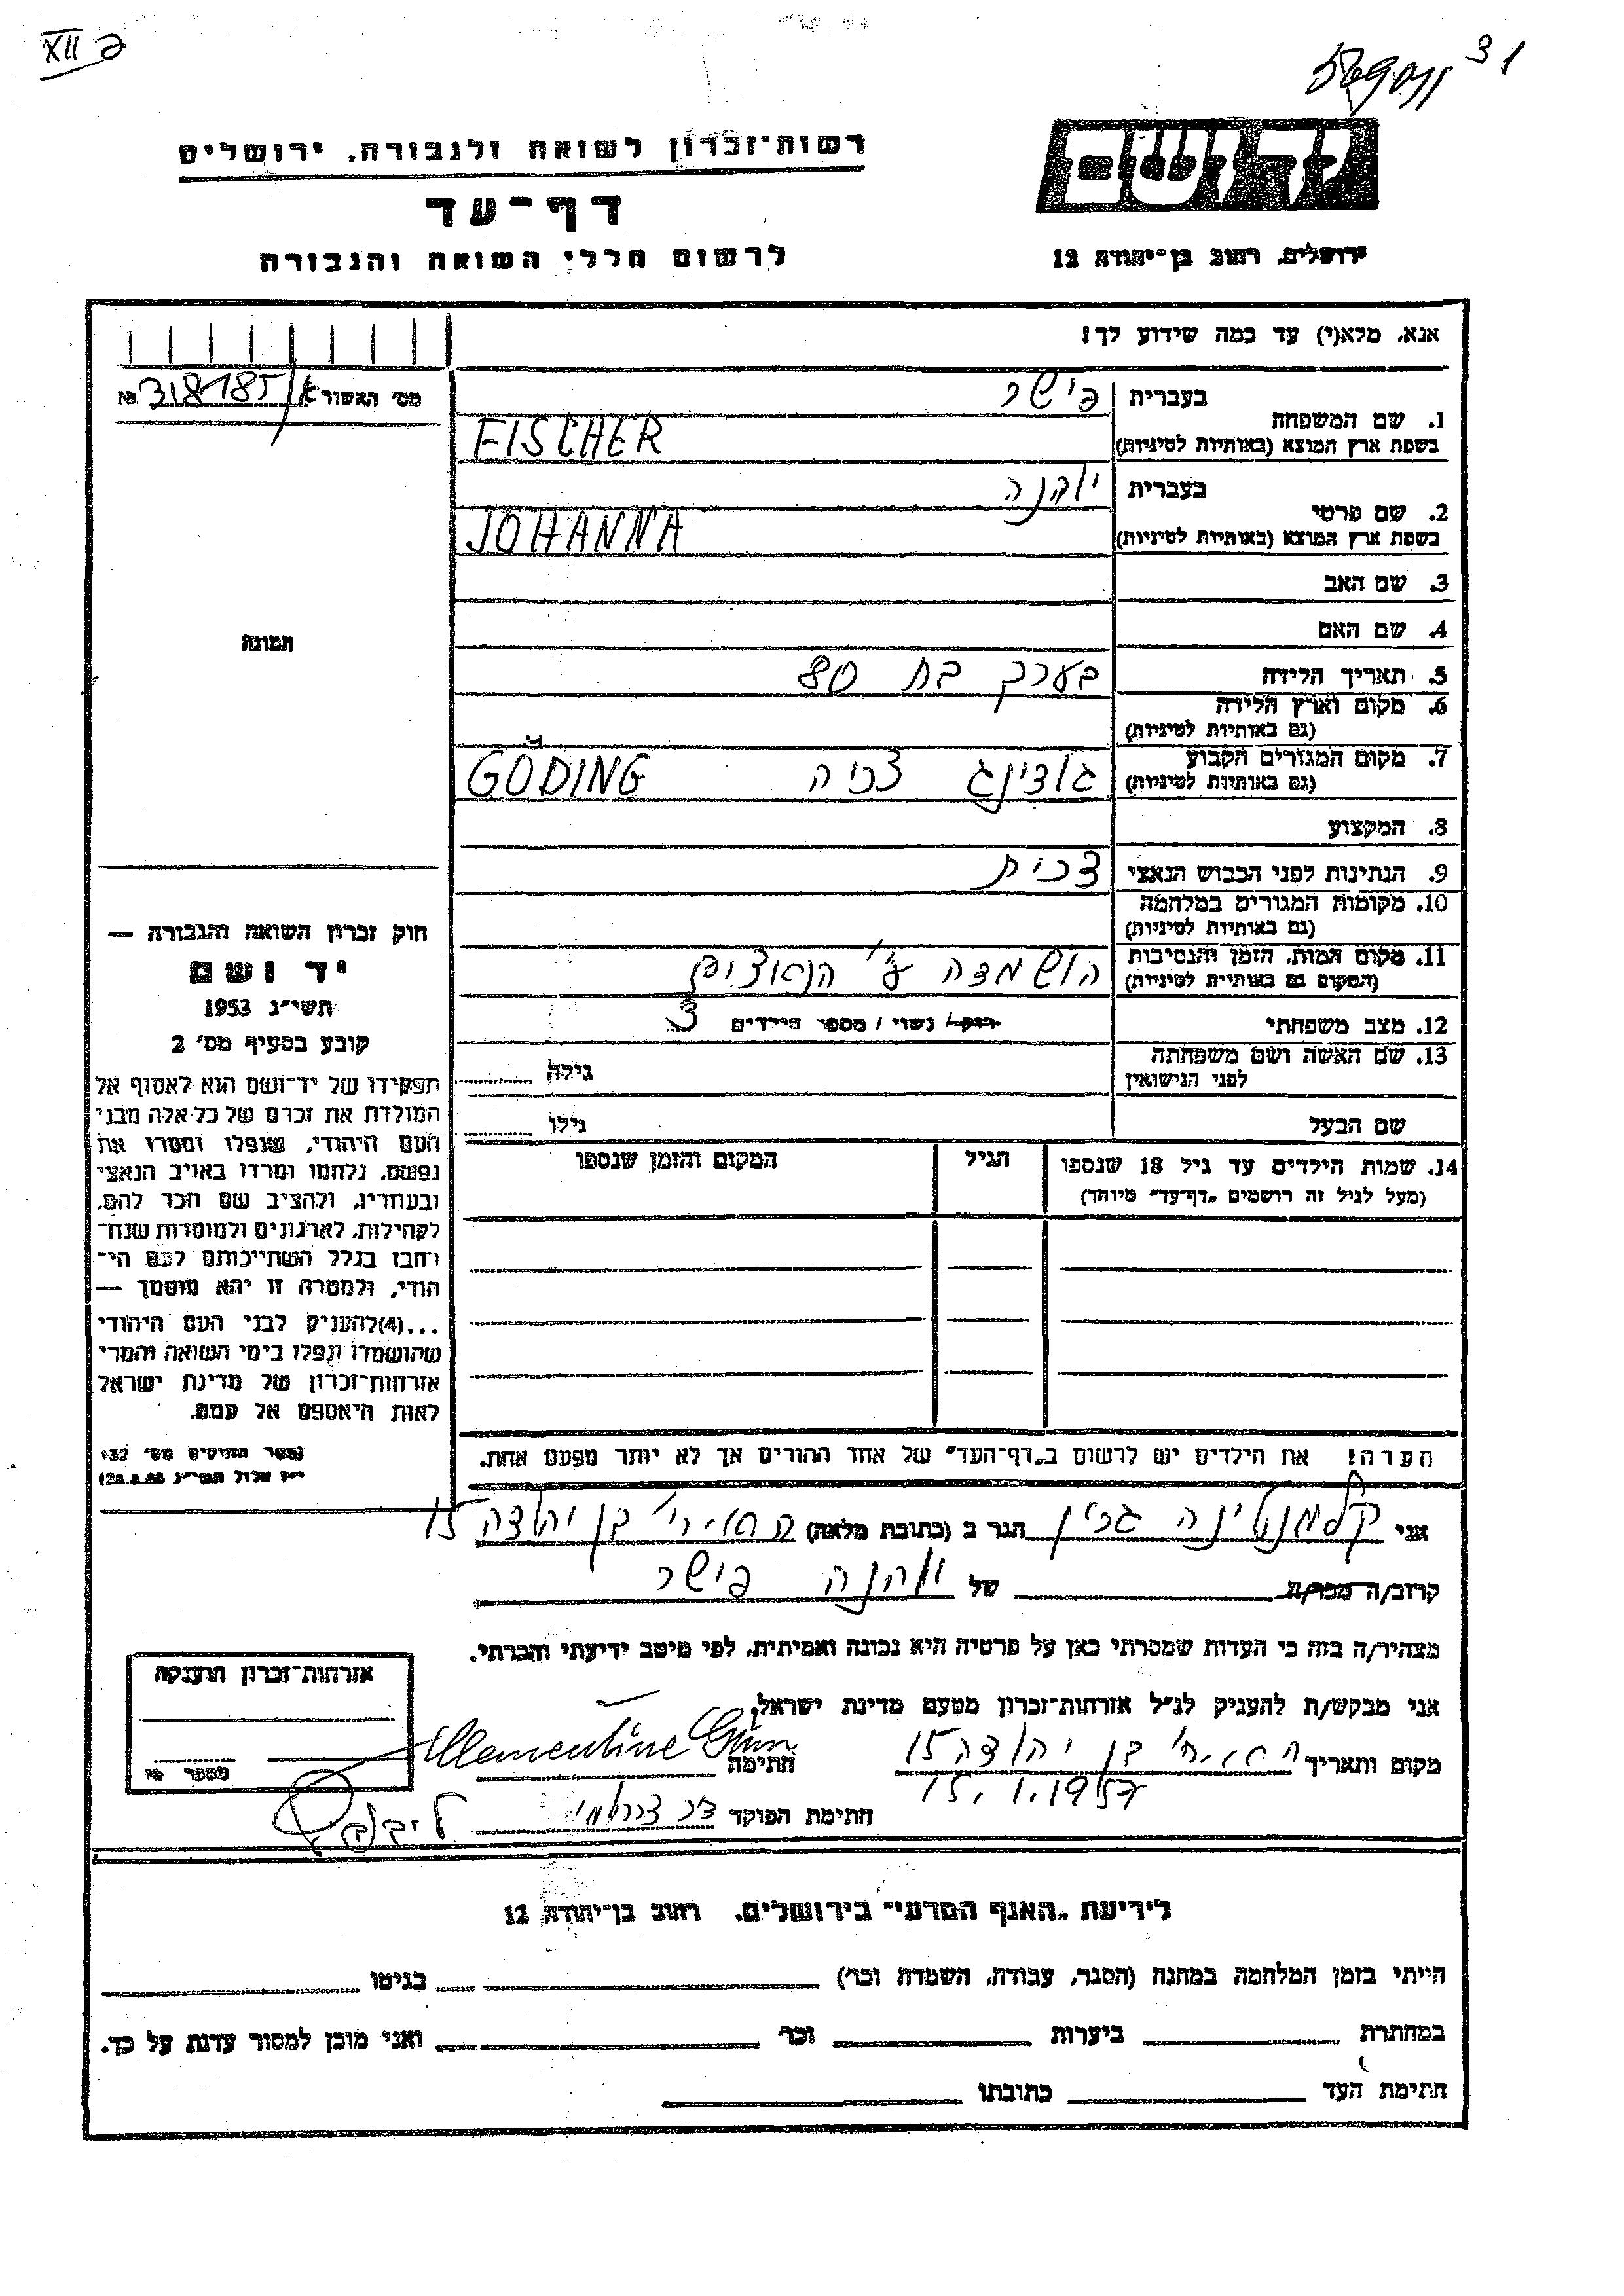 XII פ
31
רשות־זכרון לשואה ולגבורה, ירושלים
דף־עד
לרשום חללי השואה והגבורה
יד ושם
ירושלים, רחוב בן־יהודה 12
אנא, מלא(י) עד כמה שידוע לך!
מס' האשור א/318185 №
1. שם המשפחה
בעברית פישר
בשפת ארץ המוצא (באותיות לטיניות) FISCHER
2. שם פרטי
בעברית יוהנה
בשפת ארץ המוצא (באותיות לטיניות) JOHANNA
3. שם האב
4. שם האם
תמונה
5. תאריך הלידה בערך בת 80
6. מקום וארץ הלידה
(גם באותיות לטיניות)
7. מקום המגורים הקבוע גודינג צכיה GÖDING
(גם באותיות לטיניות)
8. המקצוע
9. הנתינות לפני הכבוש הנאצי צכית
10. מקומות המגורים במלחמה
(גם באותיות לטיניות)
11. מקום המות, הזמן והנסיבות הושמדה ע"י הנאצים
(המקום גם באותיות לטיניות)
12. מצב משפחתי רוק / נשוי / מספר הילדים 3
13. שם האשה ושם משפחתה גילה
לפני הנישואין
שם הבעל גילו
14. שמות הילדים עד גיל 18 שנספו הגיל המקום והזמן שנספו
(מעל לגיל זה רושמים „דף־עד" מיוחד)
חוק זכרון השואה והגבורה —
יד ושם
תשי"ג 1953
קובע בסעיף מס' 2
תפקידו של יד־ושם הוא לאסוף אל
המולדת את זכרם של כל אלה מבני
העם היהודי, שנפלו ומסרו את
נפשם, נלחמו ומרדו באויב הנאצי
ובעוזריו, ולהציב שם וזכר להם,
לקהילות, לארגונים ולמוסדות שנח־
רבו בגלל השתייכותם לעם הי־
הודי, ולמטרה זו יהא מוסמך —
...(4) להעניק לבני העם היהודי
שהושמדו ונפלו בימי השואה והמרי
אזרחות־זכרון של מדינת ישראל
לאות היאספם אל עמם.
(ספר החוקים מס' 132
הערה! את הילדים יש לרשום ב„דף־העד" של אחד ההורים אך לא יותר מפעם אחת.
אני קלמנטינה גרין הגר ב (כתובת מלאה) בן יהודה 15
קרוב/ה מכר/ה של יוהנה פישר
מצהיר/ה בזה כי העדות שמסרתי כאן על פרטיה היא נכונה ואמיתית, לפי מיטב ידיעתי והכרתי.
אני מבקש/ת להעניק לנ"ל אזרחות־זכרון מטעם מדינת ישראל.
מקום ותאריך בן יהודה 15 חתימה Clementine Grün
15.1.1957
חתימת הפוקד
אזרחות־זכרון הוענקה
מספר №
לידיעת „האגף המדעי" בירושלים, רחוב בן־יהודה 12
הייתי בזמן המלחמה במחנה (הסגר, עבודה, השמדה וכו') בגיטו
במחתרת ביערות וכו' ואני מוכן למסור עדות על כך.
חתימת העד כתובתו